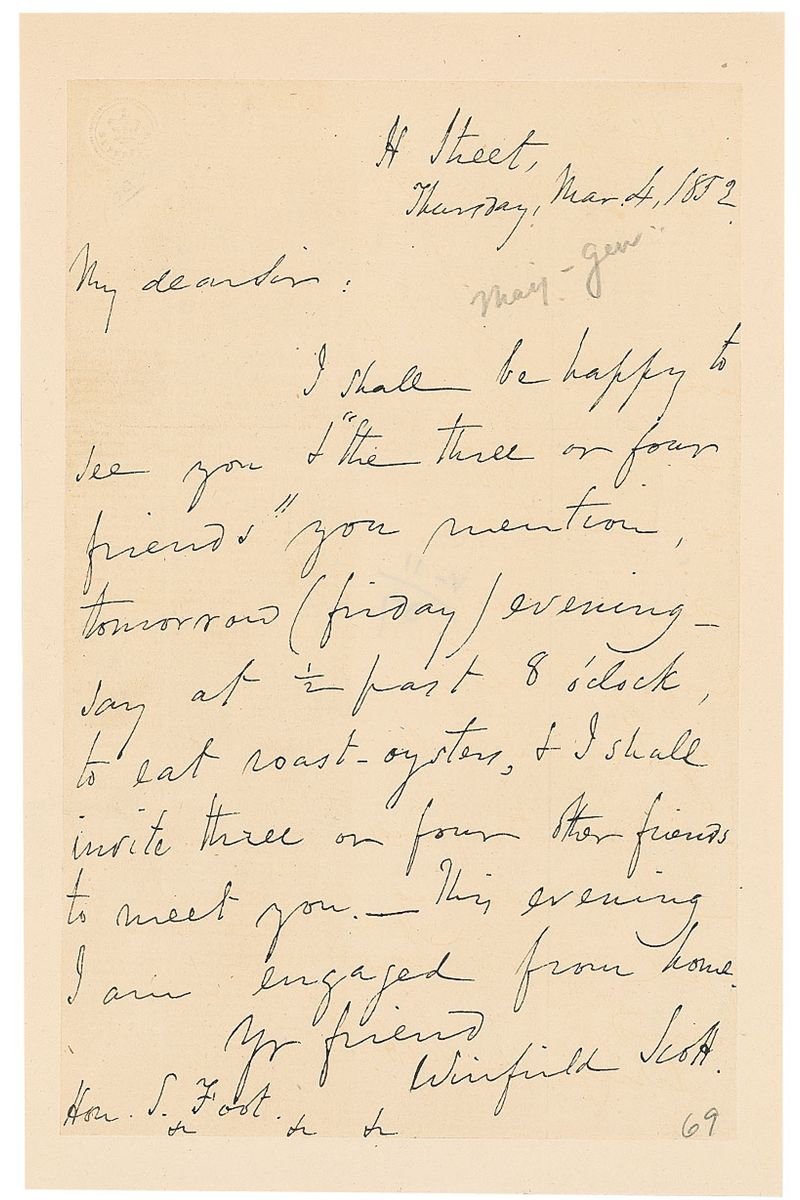 H Street,
Thursday, Mar. 4, 1852
Maj.-Gen.
My dear Sir:
I shall be happy to
see you & "the three or four
friends" you mention,
tomorrow (friday) evening—
say at ½ past 8 o'clock,
to eat roast-oysters, & I shall
invite three or four other friends
to meet you. — This evening
I am engaged from home.
Yr friend
Winfield Scott.
Hon. S. Foot.
& & &
69